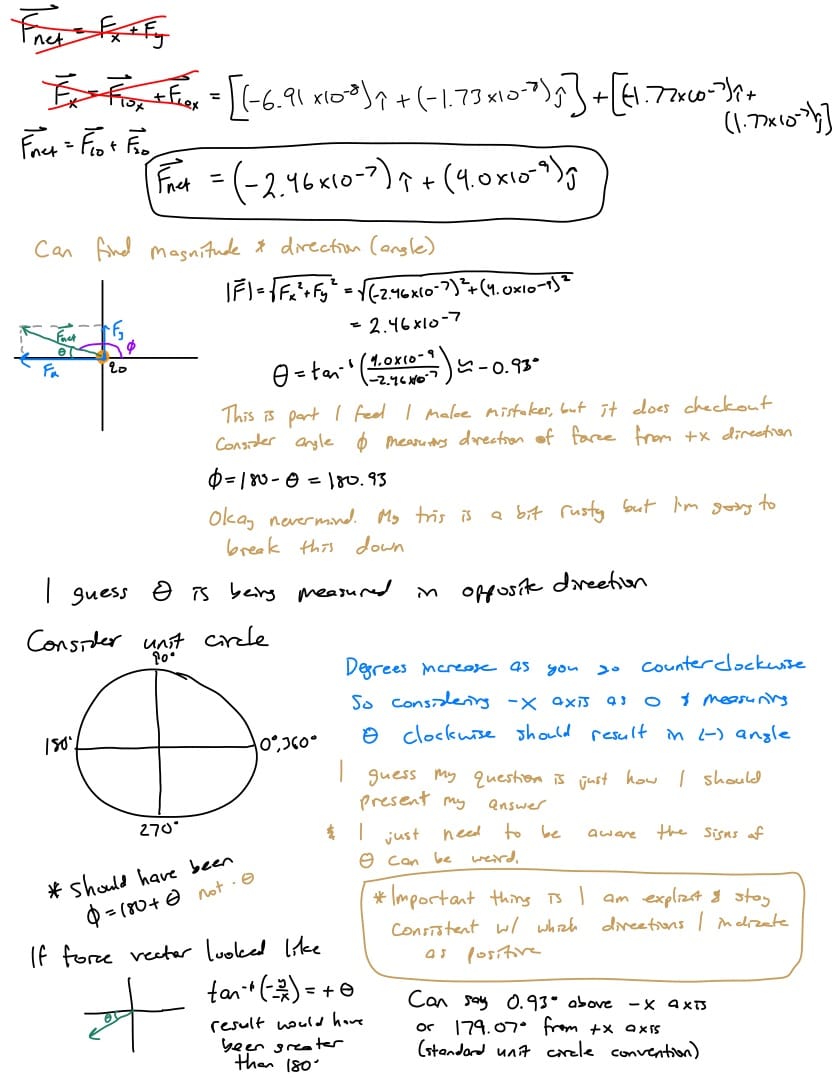 F⃗net = Fx + Fy
F⃗x = F⃗10x + F⃗10x = [(-6.91 x10⁻⁸)î + (-1.73x10⁻⁷)ĵ] + [(-1.77x10⁻⁷)î +
(1.77x10⁻⁷)ĵ]
F⃗net = F⃗10 + F⃗30
F⃗net = (-2.46x10⁻⁷)î + (4.0x10⁻⁹)ĵ
Can find magnitude & direction (angle)
|F⃗| = √Fx² + Fy² = √(-2.46x10⁻⁷)² + (4.0x10⁻⁹)²
= 2.46x10⁻⁷
Fnet Fy
θ φ
Fx 20
θ = tan⁻¹ (4.0x10⁻⁹ / -2.46x10⁻⁷) ≈ -0.93°
This is part I feel I make mistakes, but it does checkout
Consider angle φ measuring direction of force from +x direction
φ = 180 - θ = 180.93
Okay nevermind. My trig is a bit rusty but I'm going to
break this down
I guess θ is being measured in opposite direction
Consider unit circle
90°
180° 0°, 360°
270°
Degrees increase as you go counterclockwise
So considering -x axis as 0 & measuring
θ clockwise should result in (-) angle
I guess my question is just how I should
present my answer
& I just need to be aware the signs of
θ can be weird.
* should have been
φ = 180 + θ not - θ
* Important thing is I am explicit & stay
consistent w/ which directions I indicate
as positive
If force vector looked like
θ
tan⁻¹(-y/-x) = + θ
result would have
been greater
than 180°
Can say 0.93° above -x axis
or 179.07° from +x axis
(standard unit circle convention)